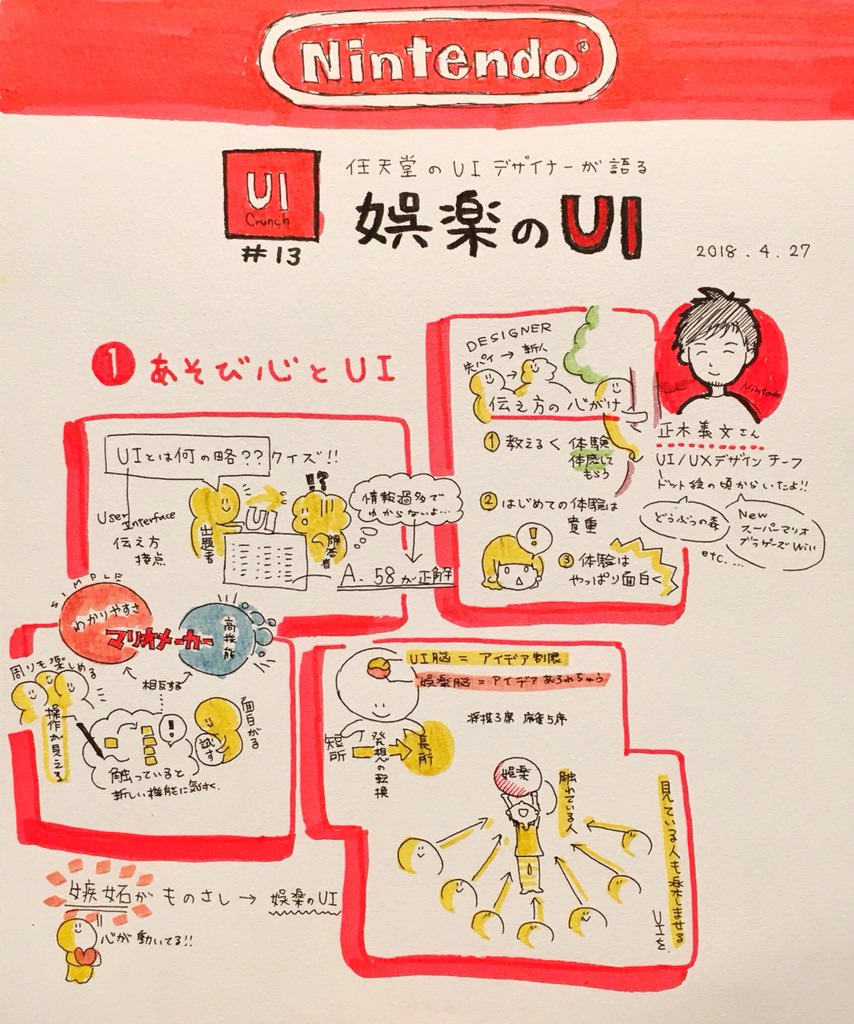 Nintendo®
UI
Crunch
#13
任天堂のUIデザイナーが語る
娯楽のUI
2018.4.27
① あそび心とUI
UIとは何の略?? クイズ!!
User
Interface
伝え方
接点
出題者
UI
!?
解答者
情報過多で
わからないよ…
A. 58が正解
DESIGNER
先パイ → 新人
伝え方の心がけ
① 教えるく 体験
体感して
もらう
② はじめての体験は
貴重
!
③ 体験は
やっぱり面白く
Nintendo
正木義文さん
UI/UXデザインチーフ
ドット絵の頃からいたよ!!
どうぶつの森
New
スーパーマリオ
ブラザーズWii
etc....
SIMPLE
わかりやすさ
マリオメーカー
高機能
相反する
周りも楽しめる
操作が見える
!
試す
面白がる
触っていると
新しい機能に気づく
UI脳 = アイデア制限
娯楽脳 = アイデアあふれちゃう
将棋3席 麻雀5席
短所
発想の転換
長所
娯楽
触れている人
見ている人も楽しませる
UIを
嫉妬がものさし → 娯楽のUI
心が動いてる!!